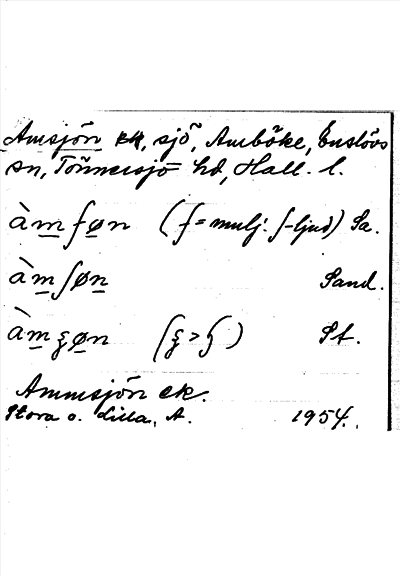 Amsjön sjö, Amböke, Enslövs
sn, Tönnersjö hd, Hall. l.
àmʃøn (ʃ = mulj. ʃ-ljud) Sa.
àmʃøn Sand.
St.
Ammsjön ek.
Stora o. Lilla, A. 1954.